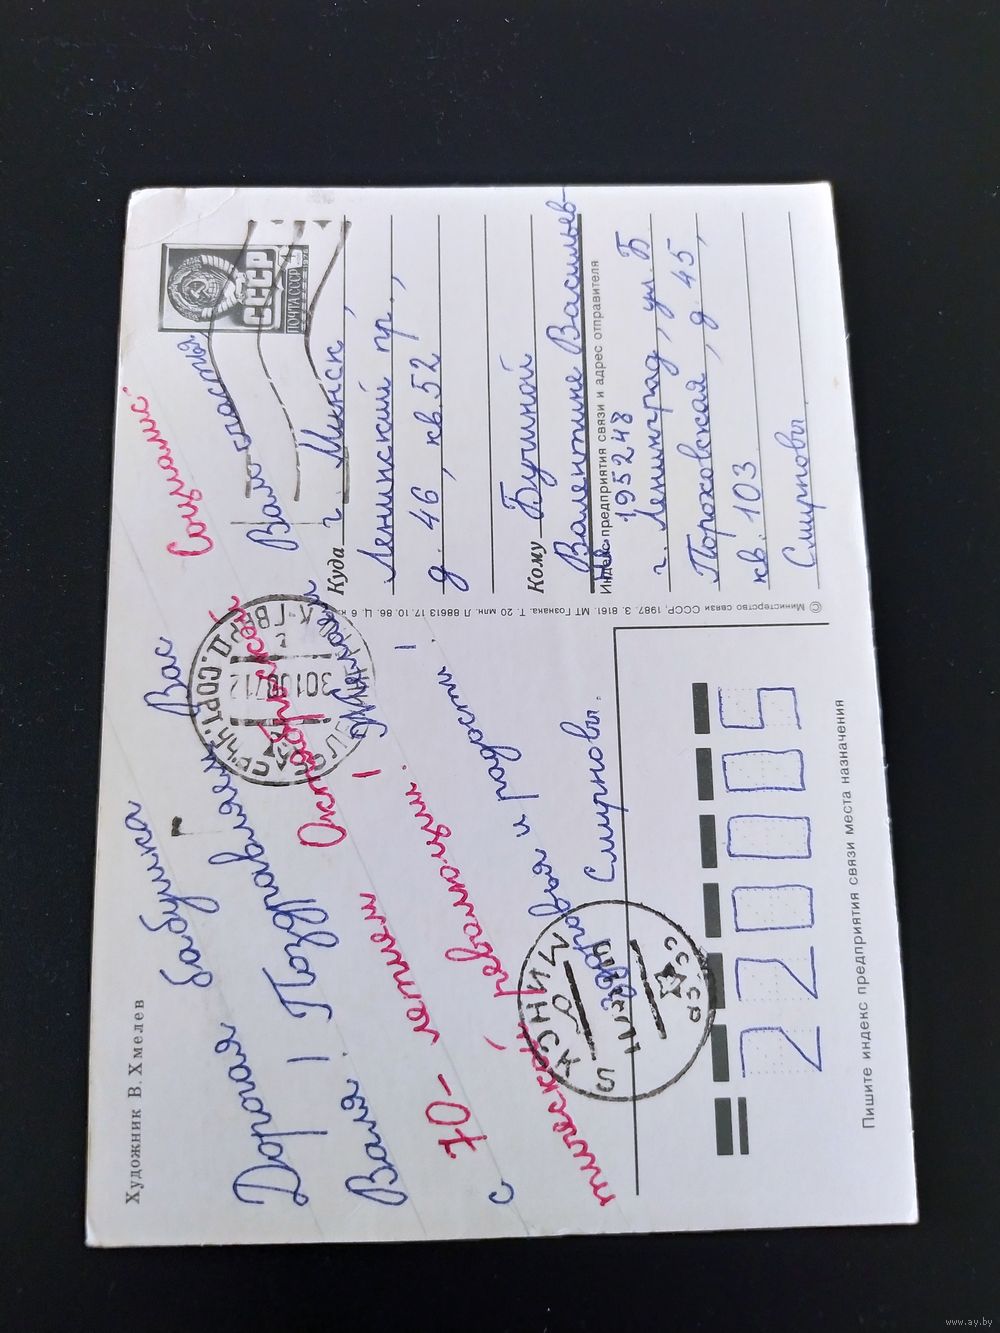 Художник В. Хмелев
Дорогая бабушка
Валя! Поздравляем Вас
с 70-летием Октябрьской Социалис
тической революции! Желаем Вам счастья,
здоровья и радости!
Смирновы.
СССР
ПОЧТА СССР
Куда г. Минск,
Ленинский пр.,
д. 46, кв. 52
Кому Бучиной
Валентине Васильев-
не
Индекс предприятия связи и адрес отправителя
195248
г. Ленинград, ул. Б
Пороховская, д. 45,
кв. 103
Смирновы
© Министерство связи СССР, 1987. З. 8161. МТ Гознака. Т. 20 млн. Л 88613 17. 10. 86. Ц. 6 к.
МИНСК
БССР
220005
Пишите индекс предприятия связи места назначения
www.ay.by